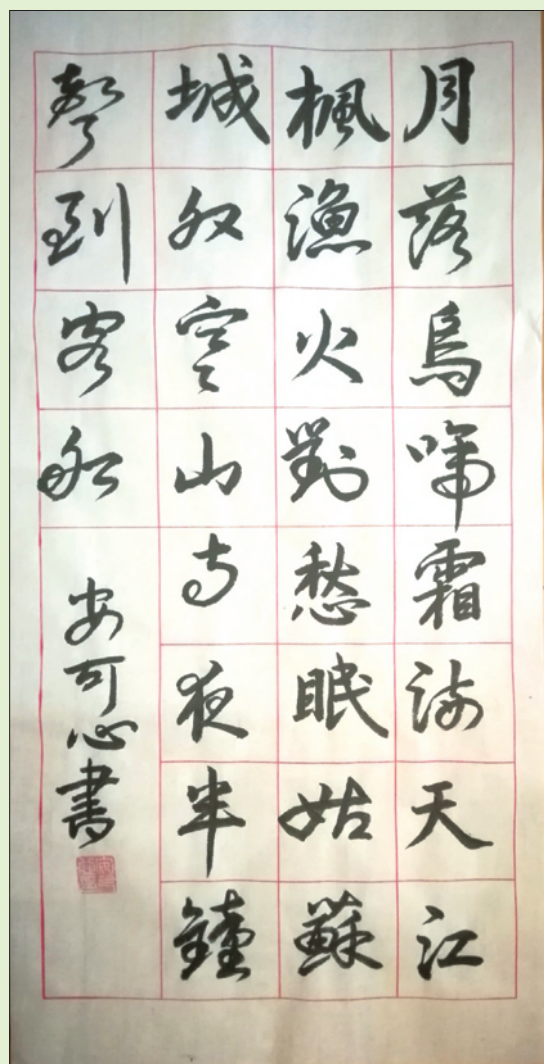 月落烏啼霜滿天江
楓漁火對愁眠姑蘇
城外寒山寺夜半鐘
聲到客船
安可心書